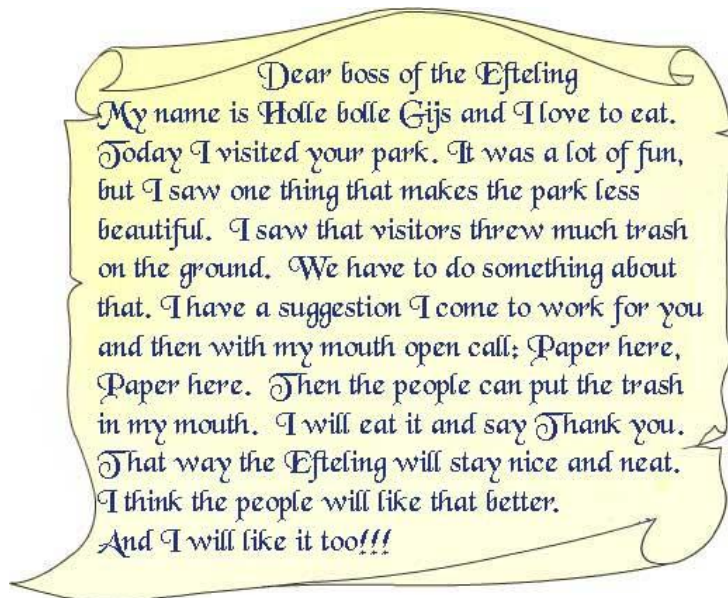 Dear boss of the Efteling
My name is Holle bolle Gijs and I love to eat.
Today I visited your park. It was a lot of fun,
but I saw one thing that makes the park less
beautiful. I saw that visitors threw much trash
on the ground. We have to do something about
that. I have a suggestion I come to work for you
and then with my mouth open call: Paper here,
Paper here. Then the people can put the trash
in my mouth. I will eat it and say Thank you.
That way the Efteling will stay nice and neat.
I think the people will like that better.
And I will like it too!!!